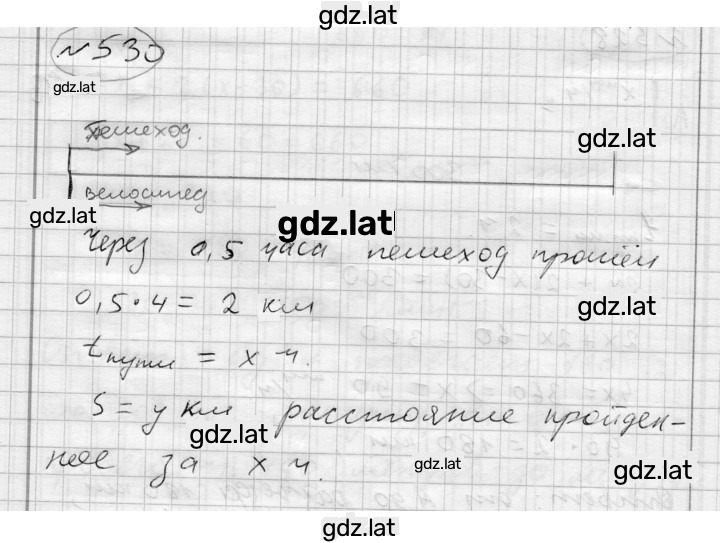 gdz.lat
№530
gdz.lat
пешеход.
gdz.lat
велосипед
gdz.lat
gdz.lat
Через 0,5 часа пешеход прошёл
0,5·4 = 2 км
gdz.lat
t пути = x ч.
S = y км расстояние пройден-
gdz.lat
ное за x ч.
gdz.lat
gdz.lat
gdz.lat